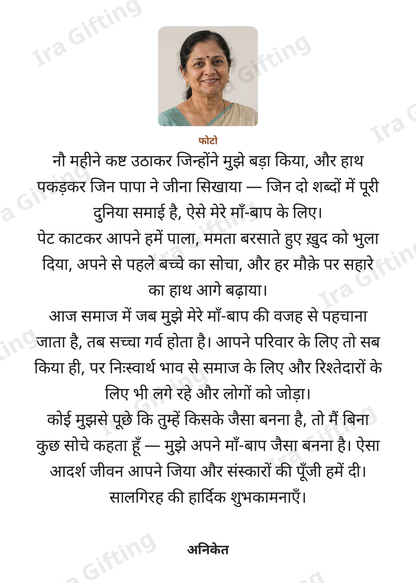 Ira Gifting
Ira Gifting
फोटो
नौ महीने कष्ट उठाकर जिन्होंने मुझे बड़ा किया, और हाथ
पकड़कर जिन पापा ने जीना सिखाया — जिन दो शब्दों में पूरी
दुनिया समाई है, ऐसे मेरे माँ-बाप के लिए।
पेट काटकर आपने हमें पाला, ममता बरसाते हुए ख़ुद को भुला
दिया, अपने से पहले बच्चे का सोचा, और हर मौक़े पर सहारे
का हाथ आगे बढ़ाया।
आज समाज में जब मुझे मेरे माँ-बाप की वजह से पहचाना
जाता है, तब सच्चा गर्व होता है। आपने परिवार के लिए तो सब
किया ही, पर निःस्वार्थ भाव से समाज के लिए और रिश्तेदारों के
लिए भी लगे रहे और लोगों को जोड़ा।
कोई मुझसे पूछे कि तुम्हें किसके जैसा बनना है, तो मैं बिना
कुछ सोचे कहता हूँ — मुझे अपने माँ-बाप जैसा बनना है। ऐसा
आदर्श जीवन आपने जिया और संस्कारों की पूँजी हमें दी।
सालगिरह की हार्दिक शुभकामनाएँ।
अनिकेत
Ira Gifting